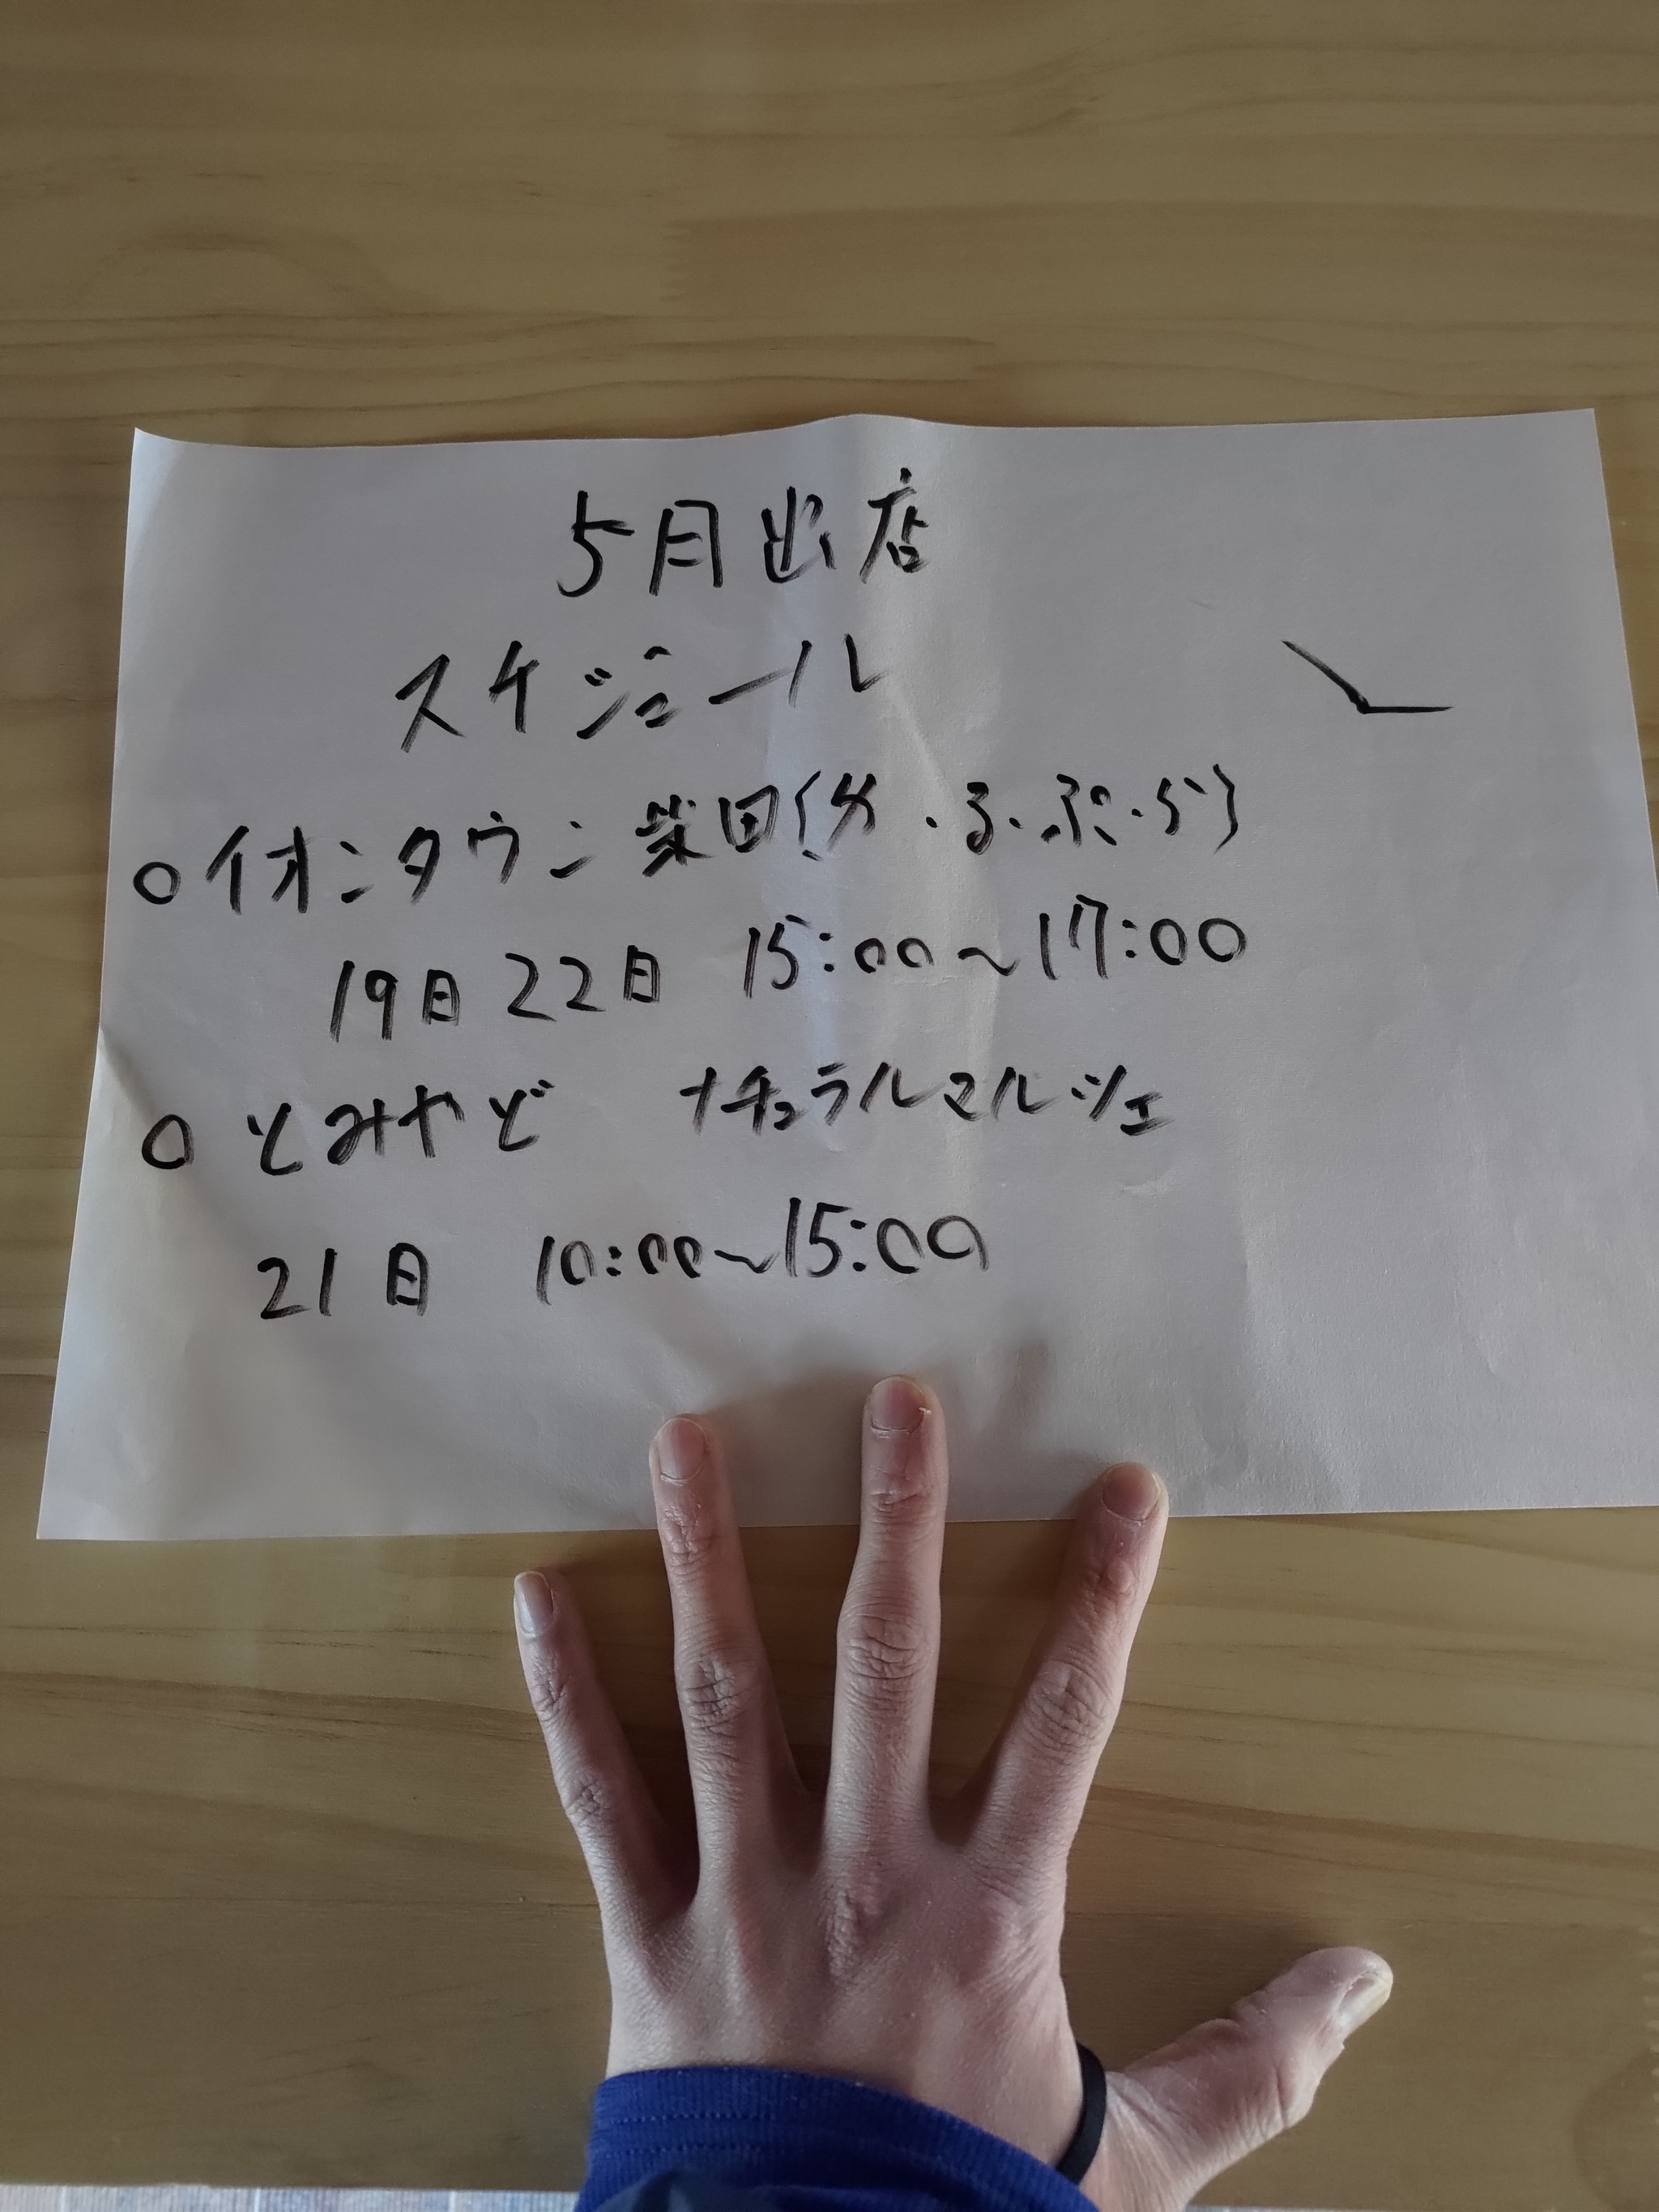 5月出店
スケジュール
○イオンタウン柴田(ザ・る・ぷ・らう)
19日 22日 15:00~17:00
○とみやど ナチュラルマルシェ
21日 10:00~15:00